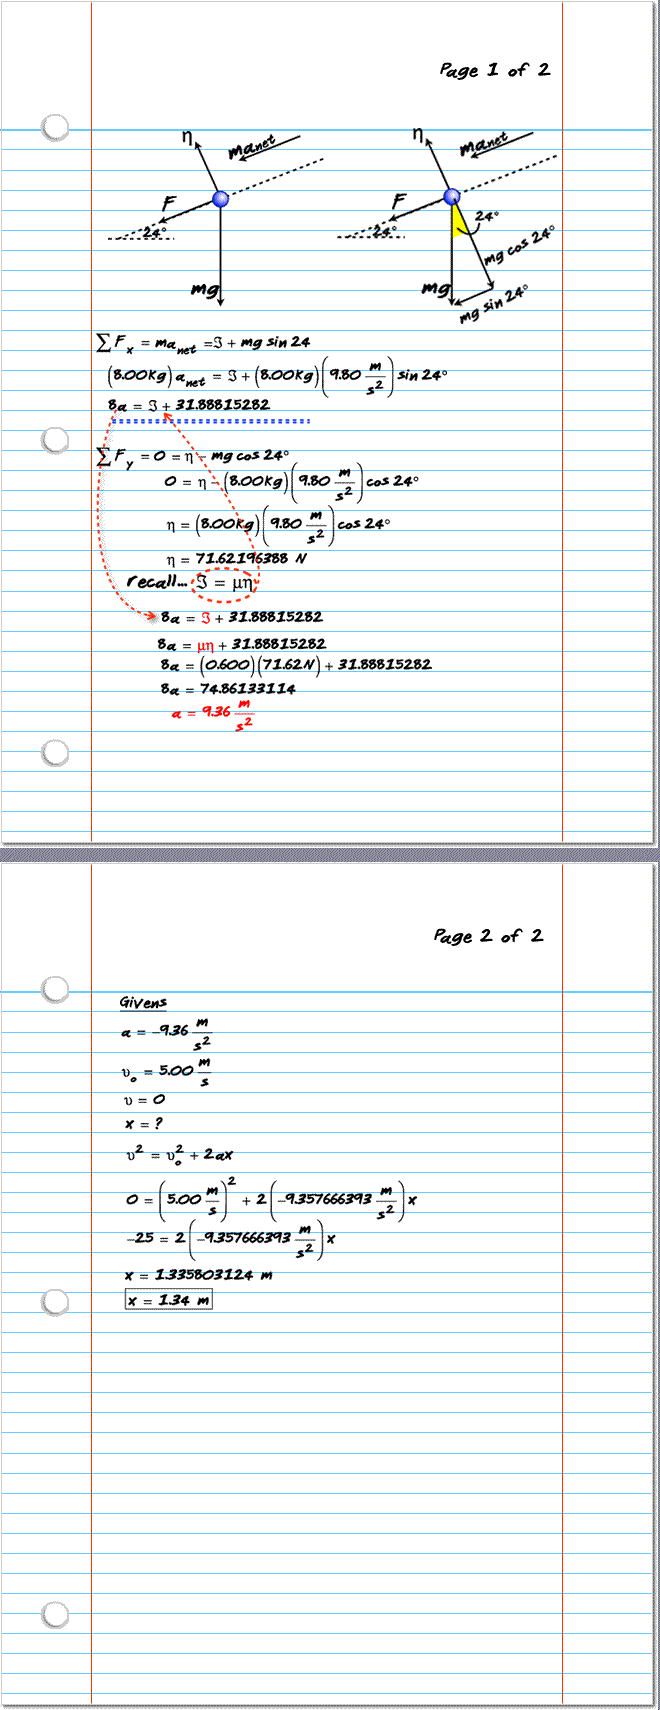 Page 1 of 2
η
ma net
F
24°
mg
η
ma net
F
24°
24°
mg cos 24°
mg
mg sin 24°
∑ F x = ma net = ℑ + mg sin 24
(8.00Kg) a net = ℑ + (8.00Kg) (9.80 m/s²) sin 24°
8a = ℑ + 31.88815282
∑ F y = 0 = η − mg cos 24°
0 = η − (8.00Kg) (9.80 m/s²) cos 24°
η = (8.00Kg) (9.80 m/s²) cos 24°
η = 71.62196388 N
recall... ℑ = μη
8a = ℑ + 31.88815282
8a = μη + 31.88815282
8a = (0.600) (71.62N) + 31.88815282
8a = 74.86133114
a = 9.36 m/s²
Page 2 of 2
Givens
a = −9.36 m/s²
υₒ = 5.00 m/s
υ = 0
x = ?
υ² = υₒ² + 2ax
0 = (5.00 m/s)² + 2 (−9.357666393 m/s²) x
−25 = 2 (−9.357666393 m/s²) x
x = 1.335803124 m
x = 1.34 m